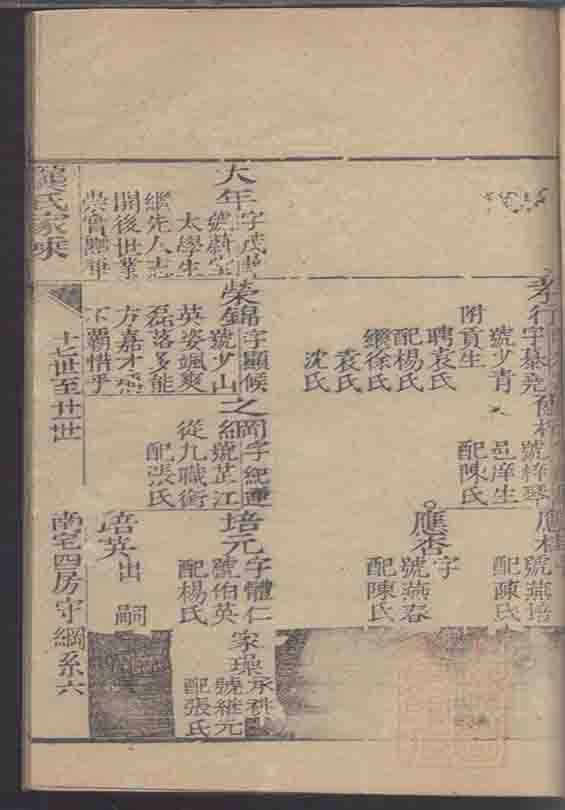 孝行
字慕堯
號少青
附貢生
聘袁氏
配楊氏
繼徐氏
袁氏
沈氏
號梓琴
邑庠生
配陳氏
號燕培
配陳氏
應杏
字
號燕春
配陳氏
大年
太學生
繼先人志
開後世業
榮錦
字顯候
號少山
英姿颯爽
磊落多能
方嘉才
不覊惜乎
之綱
號芷江
從九職銜
配張氏
培元
字體仁
號伯英
配楊氏
家
號維元
配張氏
培英
出嗣
氏家乘
十七世至廿世
南宅四房守綱系六